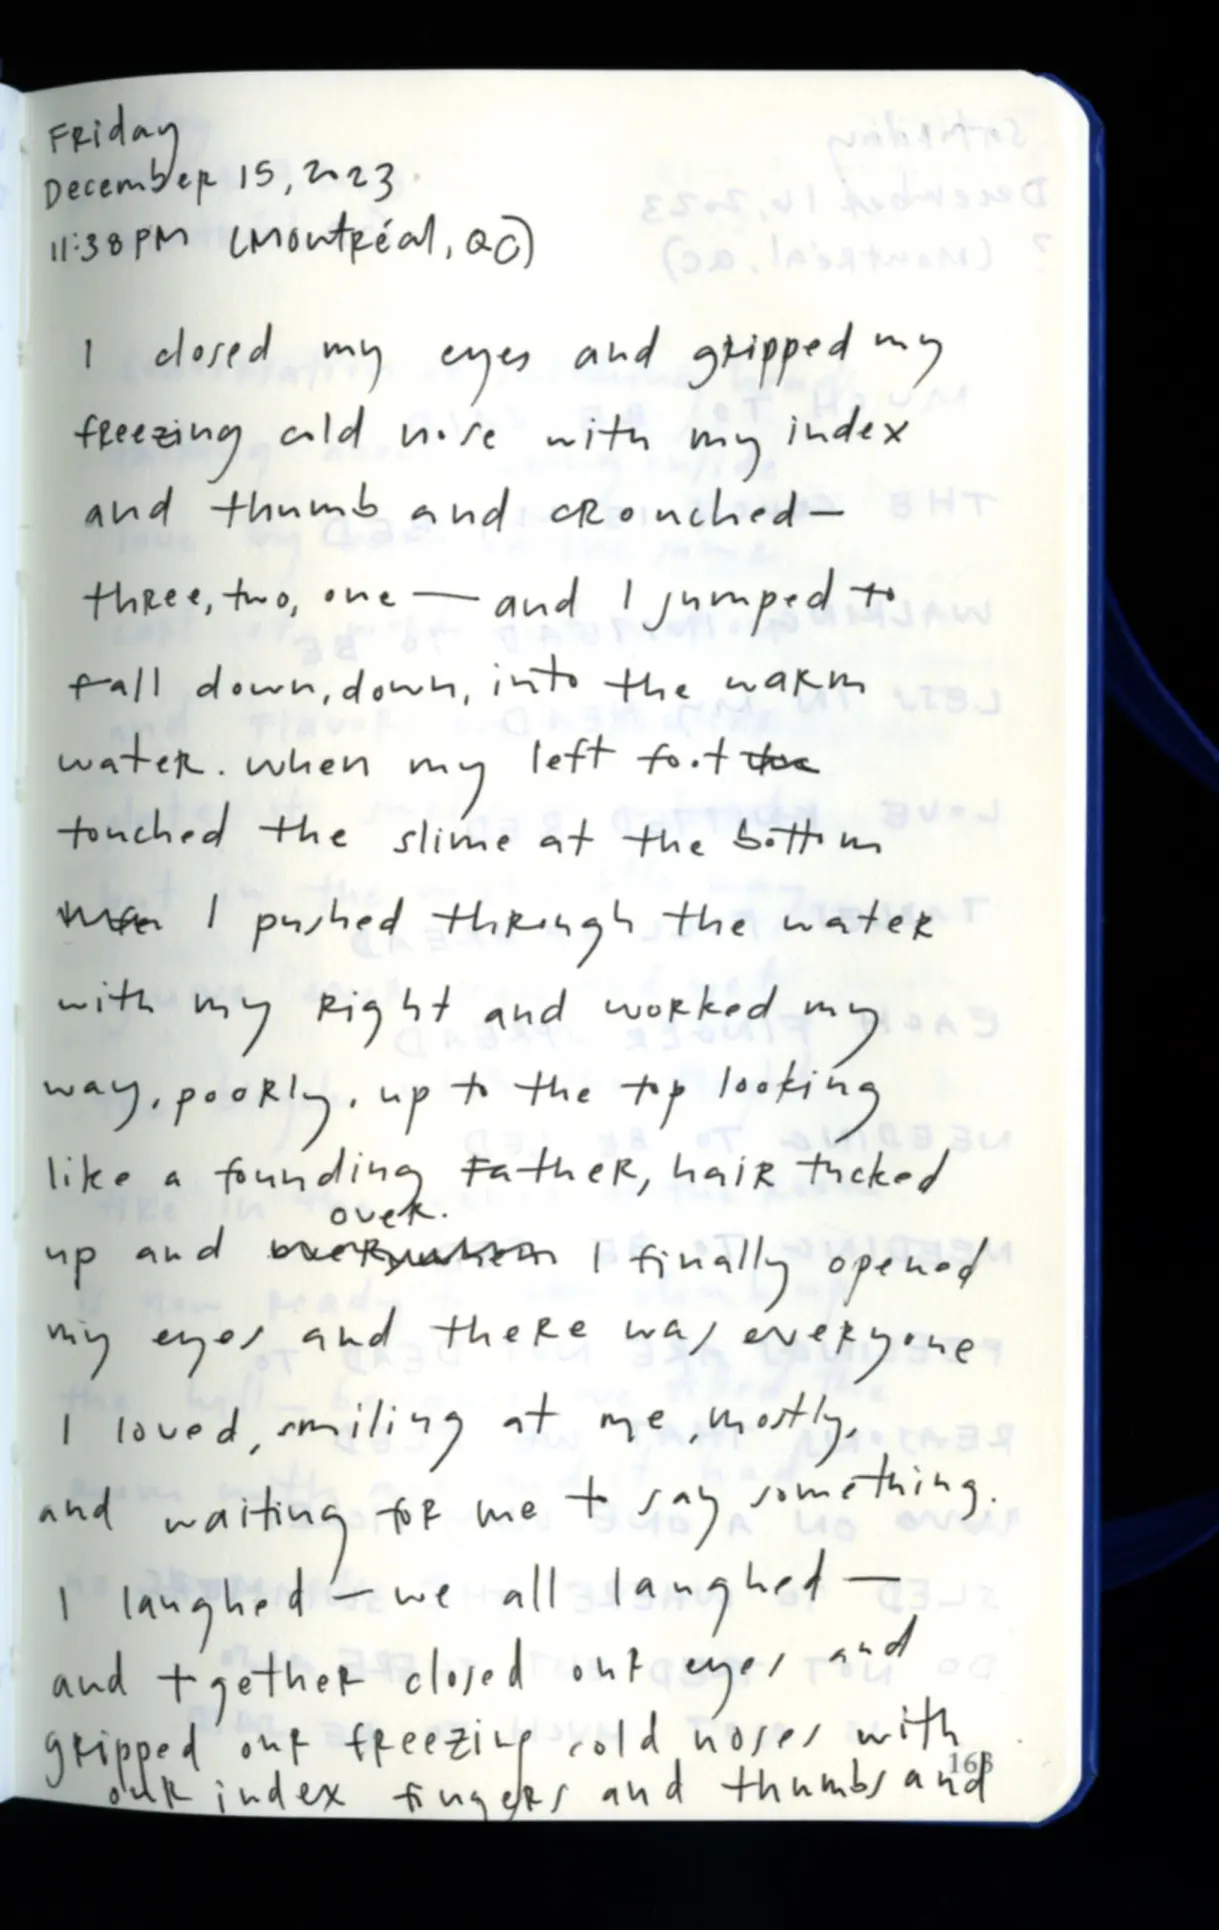 Friday
December 15, 2023.
11:38PM (Montréal, QC)
I closed my eyes and gripped my
freezing cold nose with my index
and thumb and crouched—
three, two, one — and I jumped to
fall down, down, into the warm
water. when my left foot the
touched the slime at the bottom
I pushed through the water
with my right and worked my
way, poorly, up to the top looking
like a founding Father, hair tucked
over.
up and over, when I finally opened
my eyes and there was everyone
I loved, smiling at me, mostly,
and waiting for me to say something.
I laughed — we all laughed —
and together closed our eyes and
gripped our freezing cold noses with
163
our index fingers and thumbs and